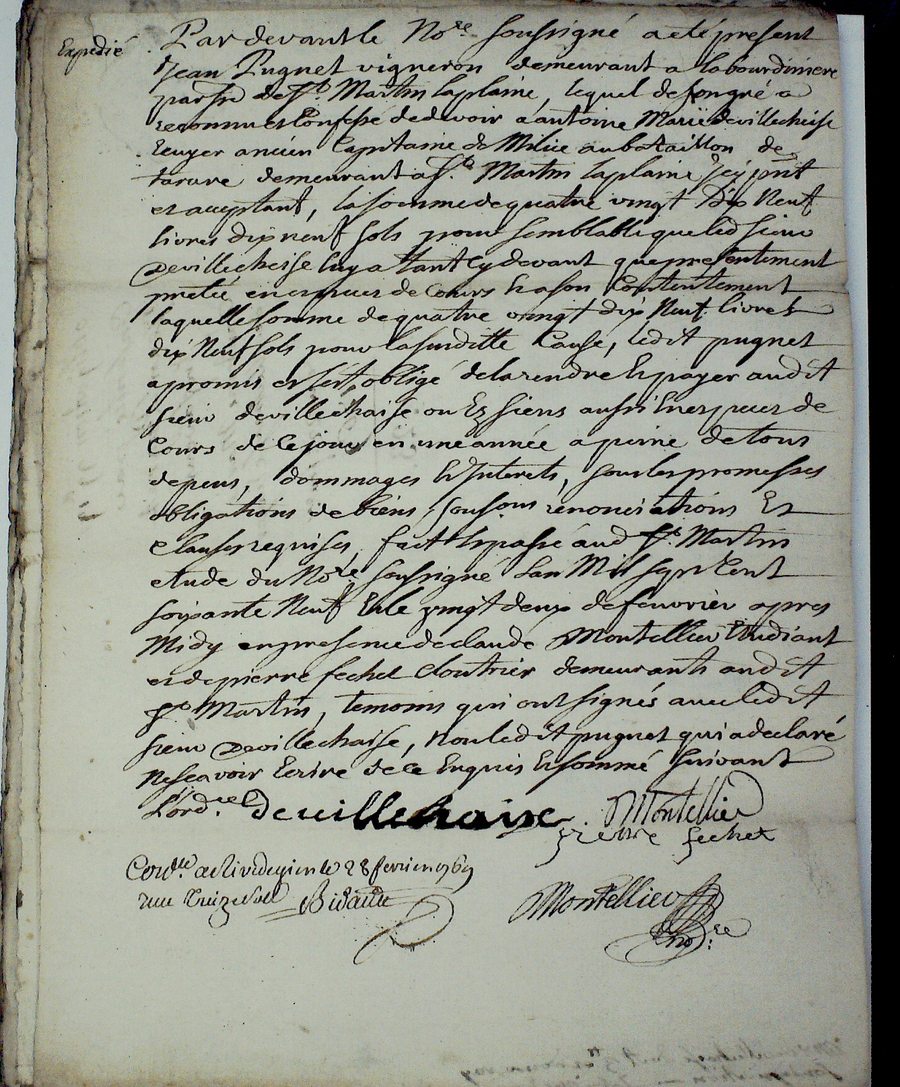 Expedié
Pardevant le No.re soussigné a eté present
Jean Pugnet vigneron demeurant a labourdiniere
parsse de St Martin laplaine, lequel de son gré a
reconnu et Confessé de devoir a antoine Marie devillecheise
Ecuyer ancien Capitaine de Milice au bataillon de
tarare demeurant a St. Martin laplaine Icy pnt
et acceptant, la somme de quatre vingt Dix Neuf
livres dix neuf sols pour semblable que led sieur
Devillecheise luy a tant cy devant que presentement
pretée en espèces de Cours & a son Contentement
laquelle somme de quatre vingt dix Neuf livres
dix Neuf sols pour la susditte Cause, ledit pugnet
a promis et s'est obligé de la rendre & payer audit
sieur devillechaise ou Ez siens aussi En espèces de
Cours de Ce jour en une année a peine de tous
depens, dommages & Interets, sous les promesses
obligations de biens, sousons renonciations Et
Clauses requises, fait & passé aud St. Martin
etude du No.re soussigné Lan Mil sept Cent
soixante Neuf & le vingt deux de feuvrier apres
Midy en presence de claude Montellier Etudiant
et de pierre fechet Cloutrier demeurants audit
St. Martin, temoins qui ont signés avec ledit
sieur devillechaise, non ledit pugnet qui a declaré
ne scavoir Ecrire de ce Enquis & sommé suivant
L'ord.ce devillechaise Montellier
pierre fechet
Con.lé a Rivedegier le 28 fevrier 1769
reçu treize sols Bidault
Montellier
No.re